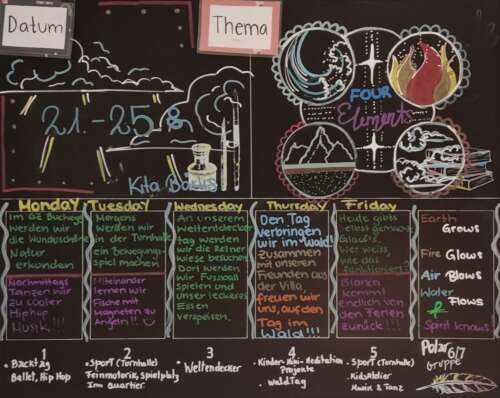 Datum
Thema
21.-25.8
Kita
FOUR
Elements
Monday
Tuesday
Wednesday
Thursday
Friday
Im GZ Buchegg
werden wir
die wunderschöne
Natur
erkunden
Nachmittags
Tanzen wir
zu cooler
Hiphop
Musik!!!
Morgens
werden wir
in der Turnhalle
ein Bewegungs-
spiel machen!
Miteinander
lernen wir
Fische mit
Magneten zu
Angeln!!
An unserem
Weltentdecker
tag werden
wir die
wiese besuchen
Dort werden
wir Fussball
spielen und
unser leckeres
Essen
verspeisen.
Den Tag
verbringen
wir im Wald!
Zusammen
mit unseren
Freunden aus
der Villa,
freuen wir
uns, auf den
Tag im
Wald!!!
Heute gibts
selbst gemacht
wer weiss,
wie das
funktioniert?
kommt
endlich von
den Ferien
zurück!!!
Earth
Grows
Fire Glows
Air Blows
Water
Flows
&
Spirit knows!
1
• Backtag
Ballet, Hip Hop
2
• Sport (Turnhalle)
Feinmotorik, Spielplatz
Im Quartier
3
• Weltendecker
4
• Kinder-Mini-Meditation
Projekte
• WaldTag
5
• Sport (Turnhalle)
• KidsAtelier
Musik & Tanz
Polar 6/7
Gruppe